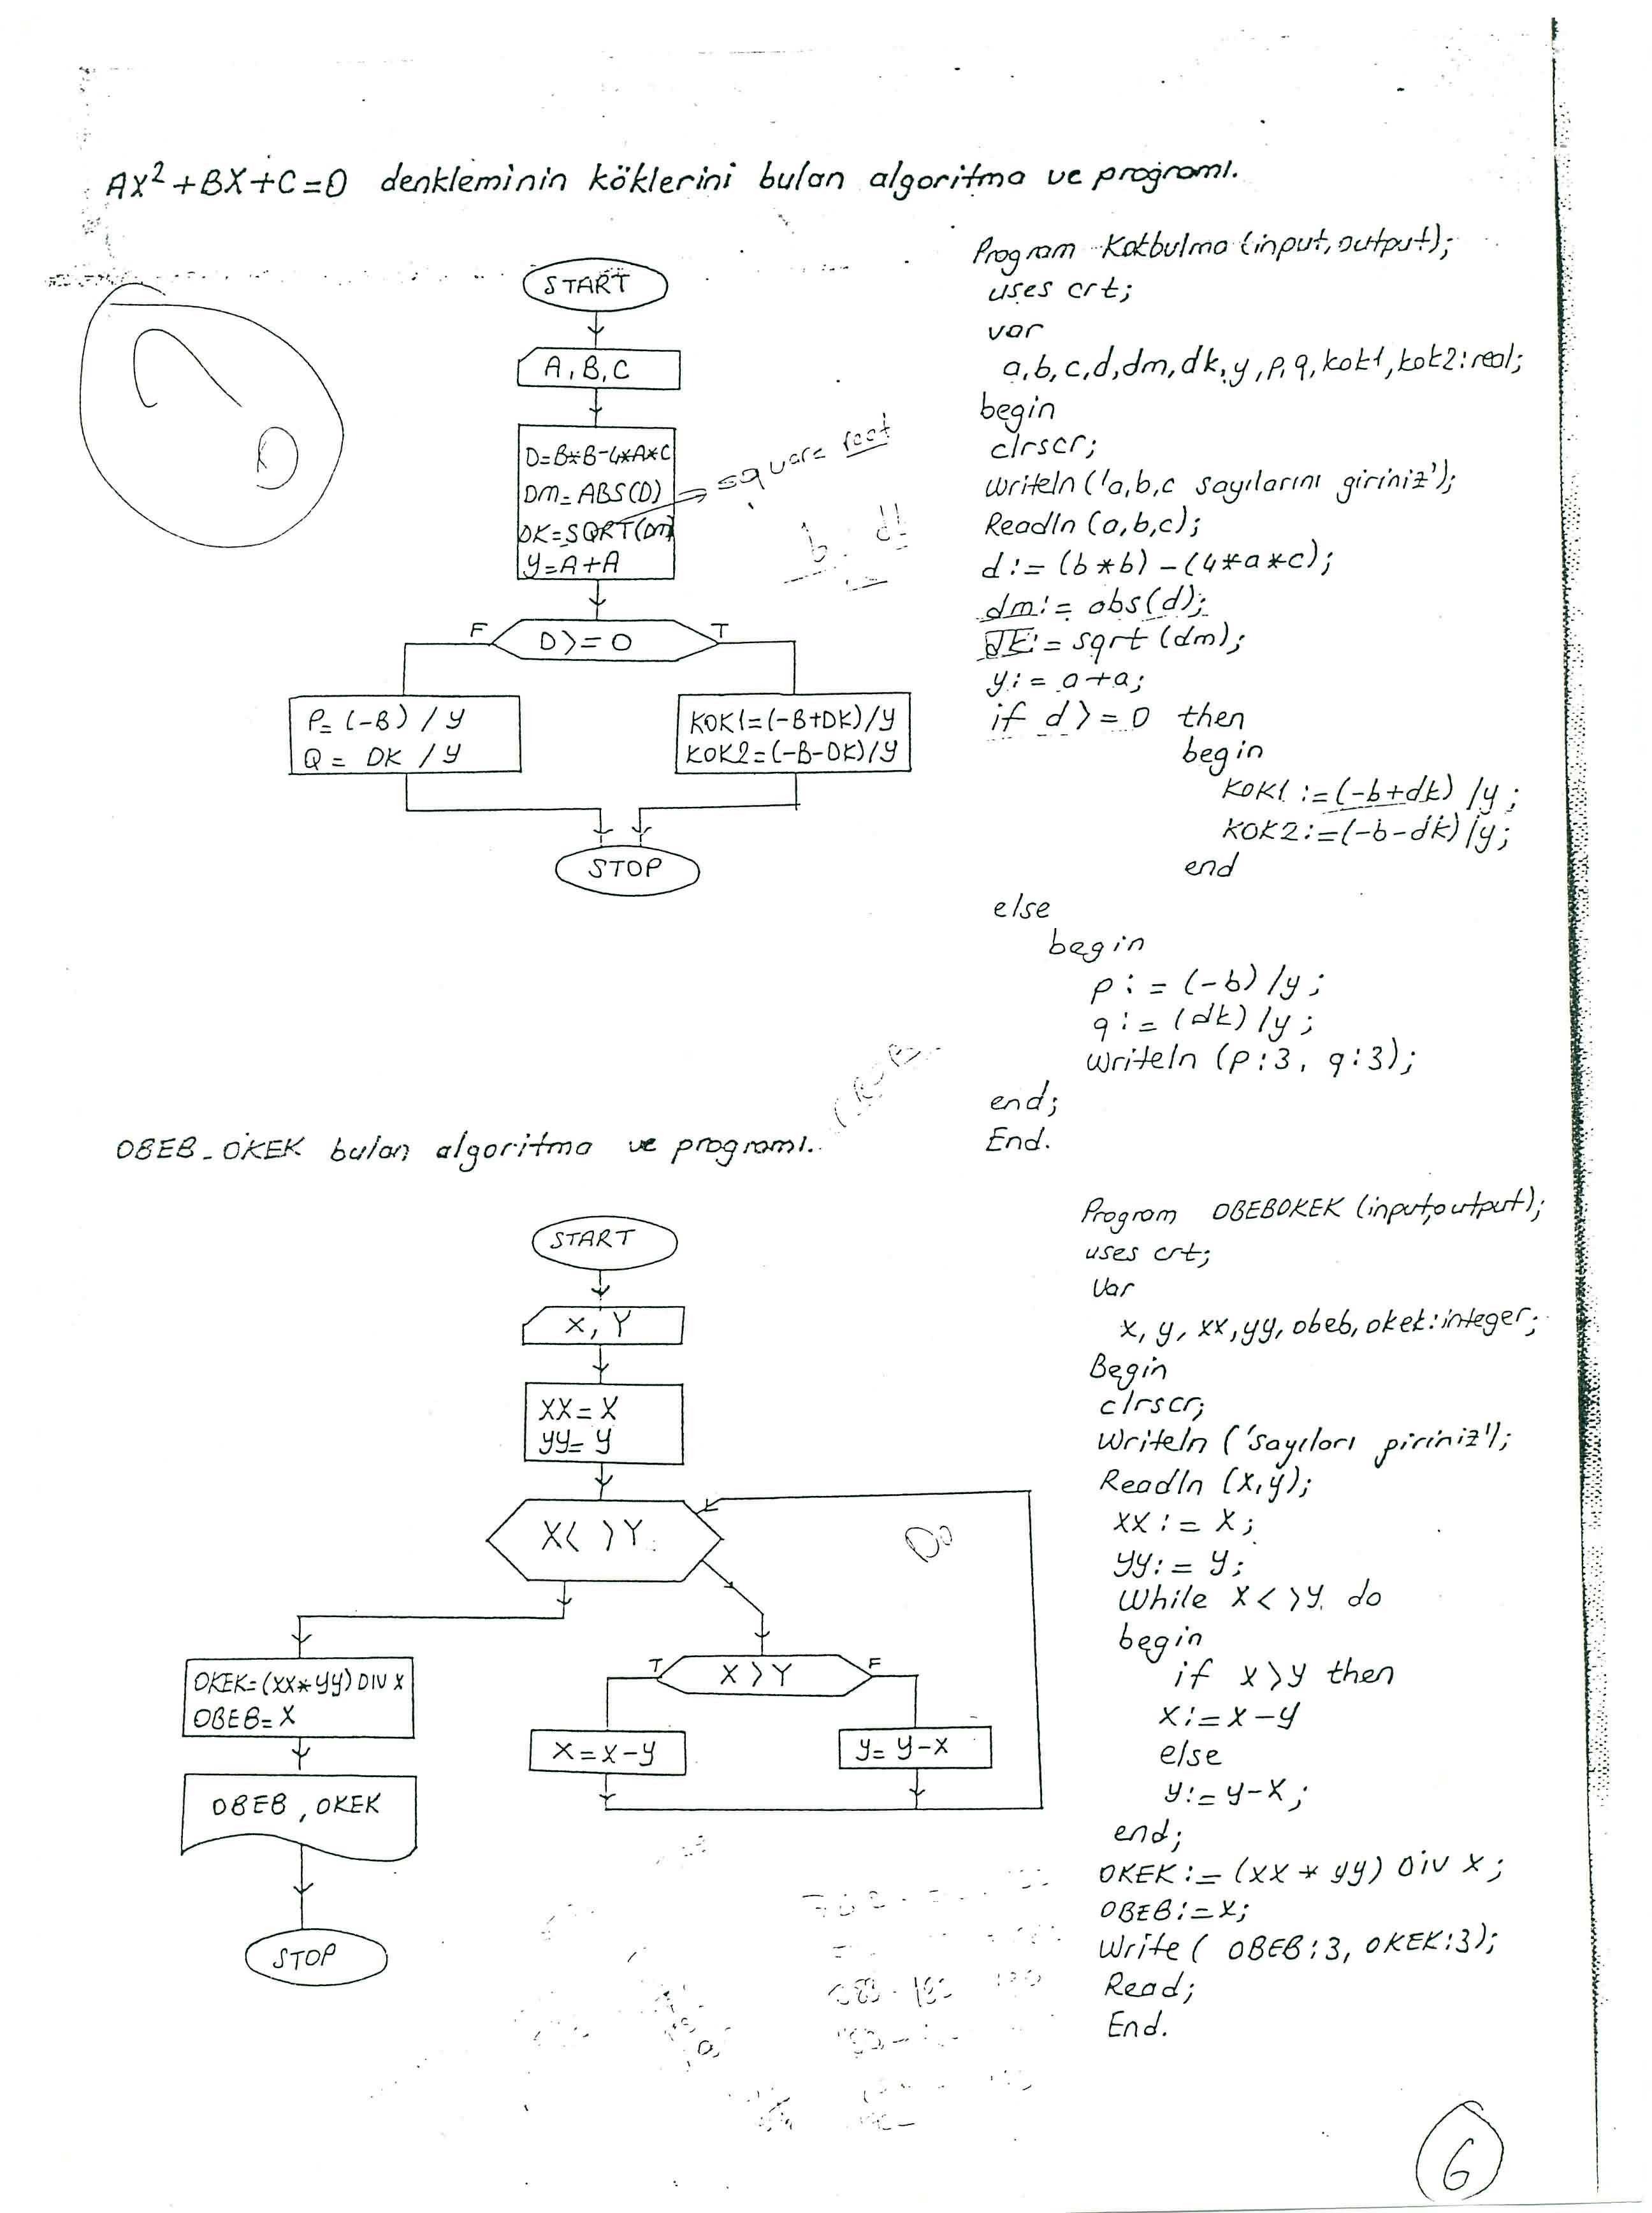 AX²+BX+C=0 denkleminin köklerini bulan algoritma ve programı.
START
A, B, C
D=B*B-4*A*C
DM=ABS(D)
DK=SQRT(DM)
Y=A+A
square root
b
F
D>=0
T
P=(-B) / Y
Q= DK / Y
KOK1=(-B+DK)/Y
KOK2=(-B-DK)/Y
STOP
Program Kokbulma (input, output);
uses crt;
var
a,b,c,d,dm,dk,y,p,q,kok1,kok2:real;
begin
clrscr;
Writeln ('a,b,c sayılarını giriniz');
Readln (a,b,c);
d := (b*b) - (4*a*c);
dm := abs(d);
dk := sqrt (dm);
y := a+a;
if d >= 0 then
begin
KOK1 :=(-b+dk) /y;
KOK2:=(-b-dk)/y;
end
else
begin
p := (-b) /y;
q := (dk) /y;
writeln (p:3, q:3);
end;
End.
OBEB_OKEK bulan algoritma ve programı.
START
X, Y
XX=X
YY=Y
X< >Y
Do
OKEK=(XX*YY) DIV X
OBEB=X
OBEB, OKEK
STOP
T
X > Y
F
X=X-Y
Y=Y-X
Program OBEBOKEK (input,output);
uses crt;
Var
x, y, xx, yy, obeb, okek:integer;
Begin
clrscr;
Writeln ('Sayıları piriniz');
Readln (x,y);
XX := X;
YY := Y;
While X < >Y do
begin
if x >y then
X:=X-Y
else
Y:=Y-X;
end;
OKEK := (XX * YY) DIV X;
OBEB:=X;
Write ( OBEB:3, OKEK:3);
Read;
End.
6